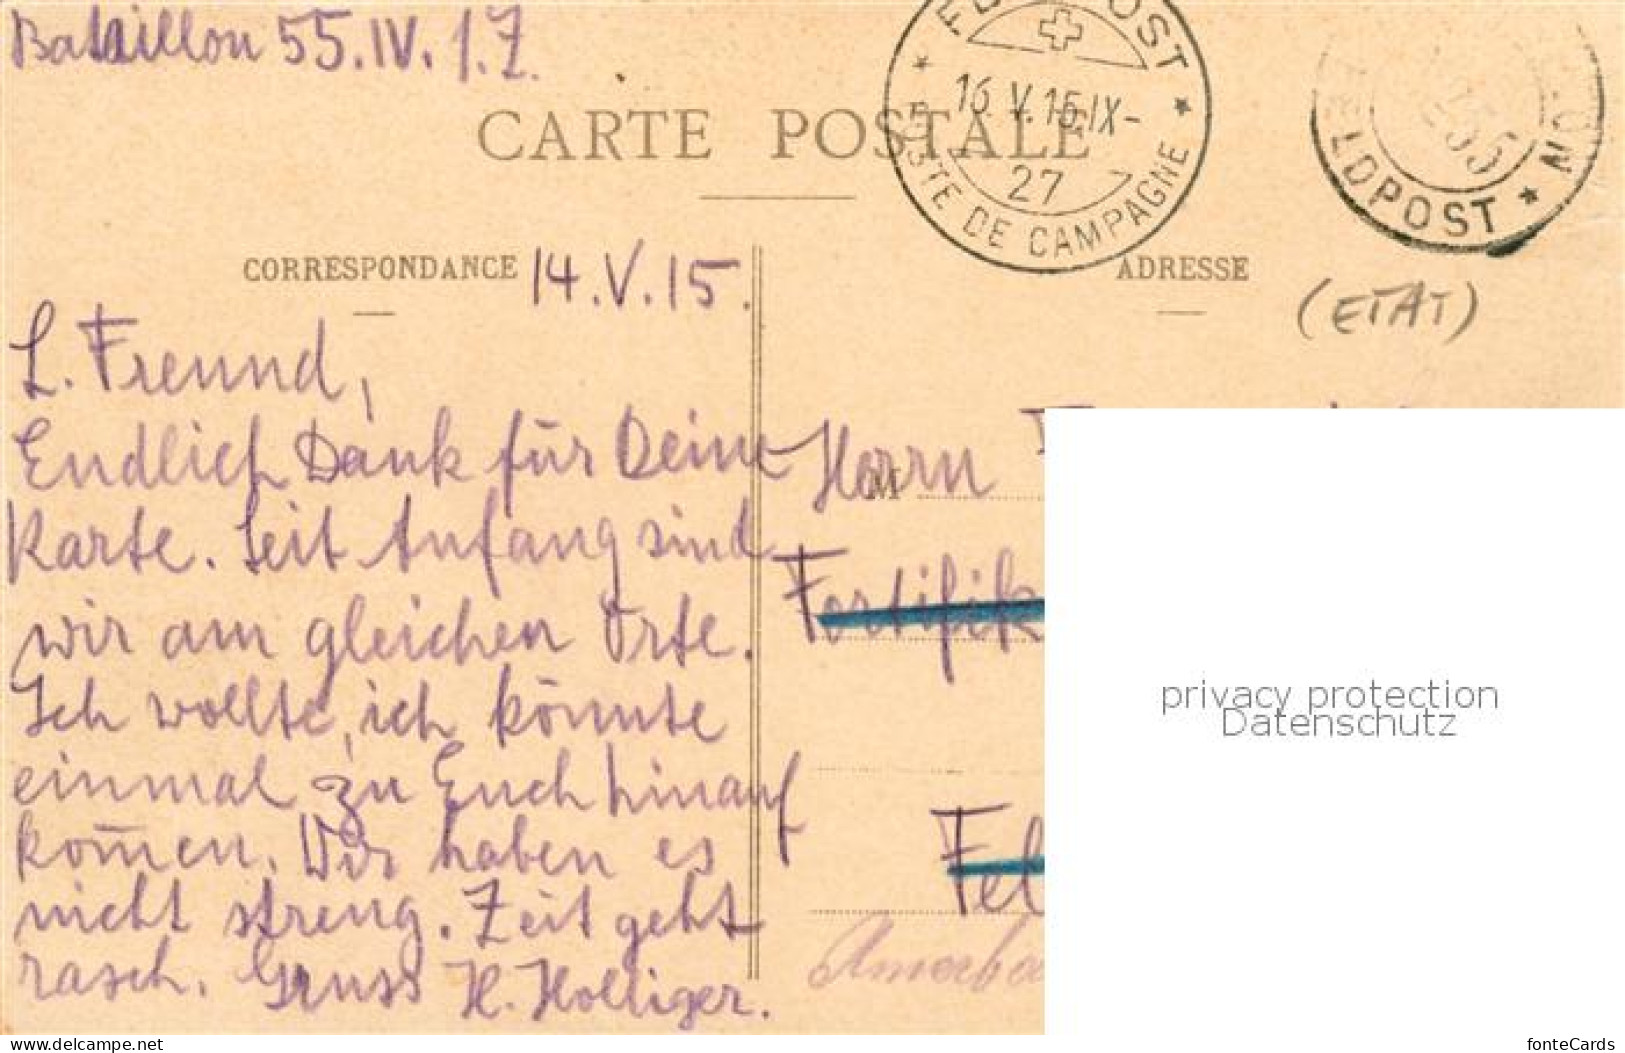 Bataillon 55. IV. 1. Z.
FELDPOST
16 V. 15. IX-
27
POSTE DE CAMPAGNE
FELDPOST
CARTE POSTALE
CORRESPONDANCE
ADRESSE
14. V. 15.
(ETAT)
L. Freund,
Endlich Dank für Deine
Karte. Seit Anfang sind
wir am gleichen Orte.
Ich wollte, ich könnte
einmal zu Euch hinauf
kom̄en. Wir haben es
nicht streng. Zeit geht
rasch. Gruss H. Holliger.
M
Herrn
Fortifik
Fel
privacy protection
Datenschutz
www.delcampe.net
fonteCards